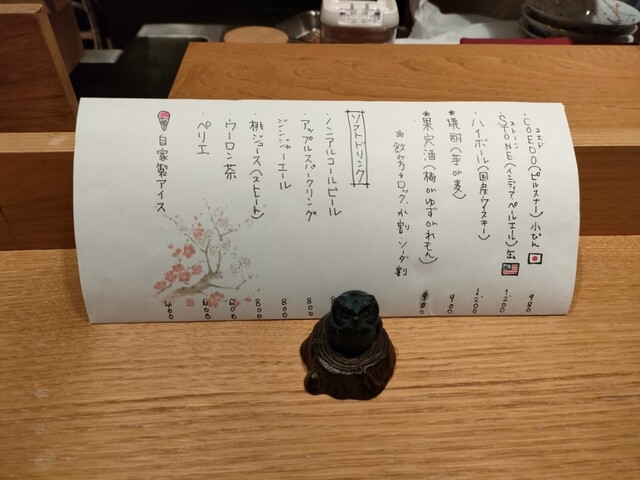 コエド
・COEDO(ピルスナー)小びん 980
ストーン
・STONE(インディアペールエール)缶 1200
・ハイボール(国産ウイスキー) 1200
*焼酎(芋or麦) 900
*果実酒(梅orゆずorれもん) 900
飲み方→ロック、水割、ソーダ割
ソフトドリンク
・ノンアルコールビール 8
・アップルスパークリング 800
・ジンジャーエール 800
・桃ジュース(ストレート) 800
・ウーロン茶 600
・ペリエ 600
自家製アイス 400